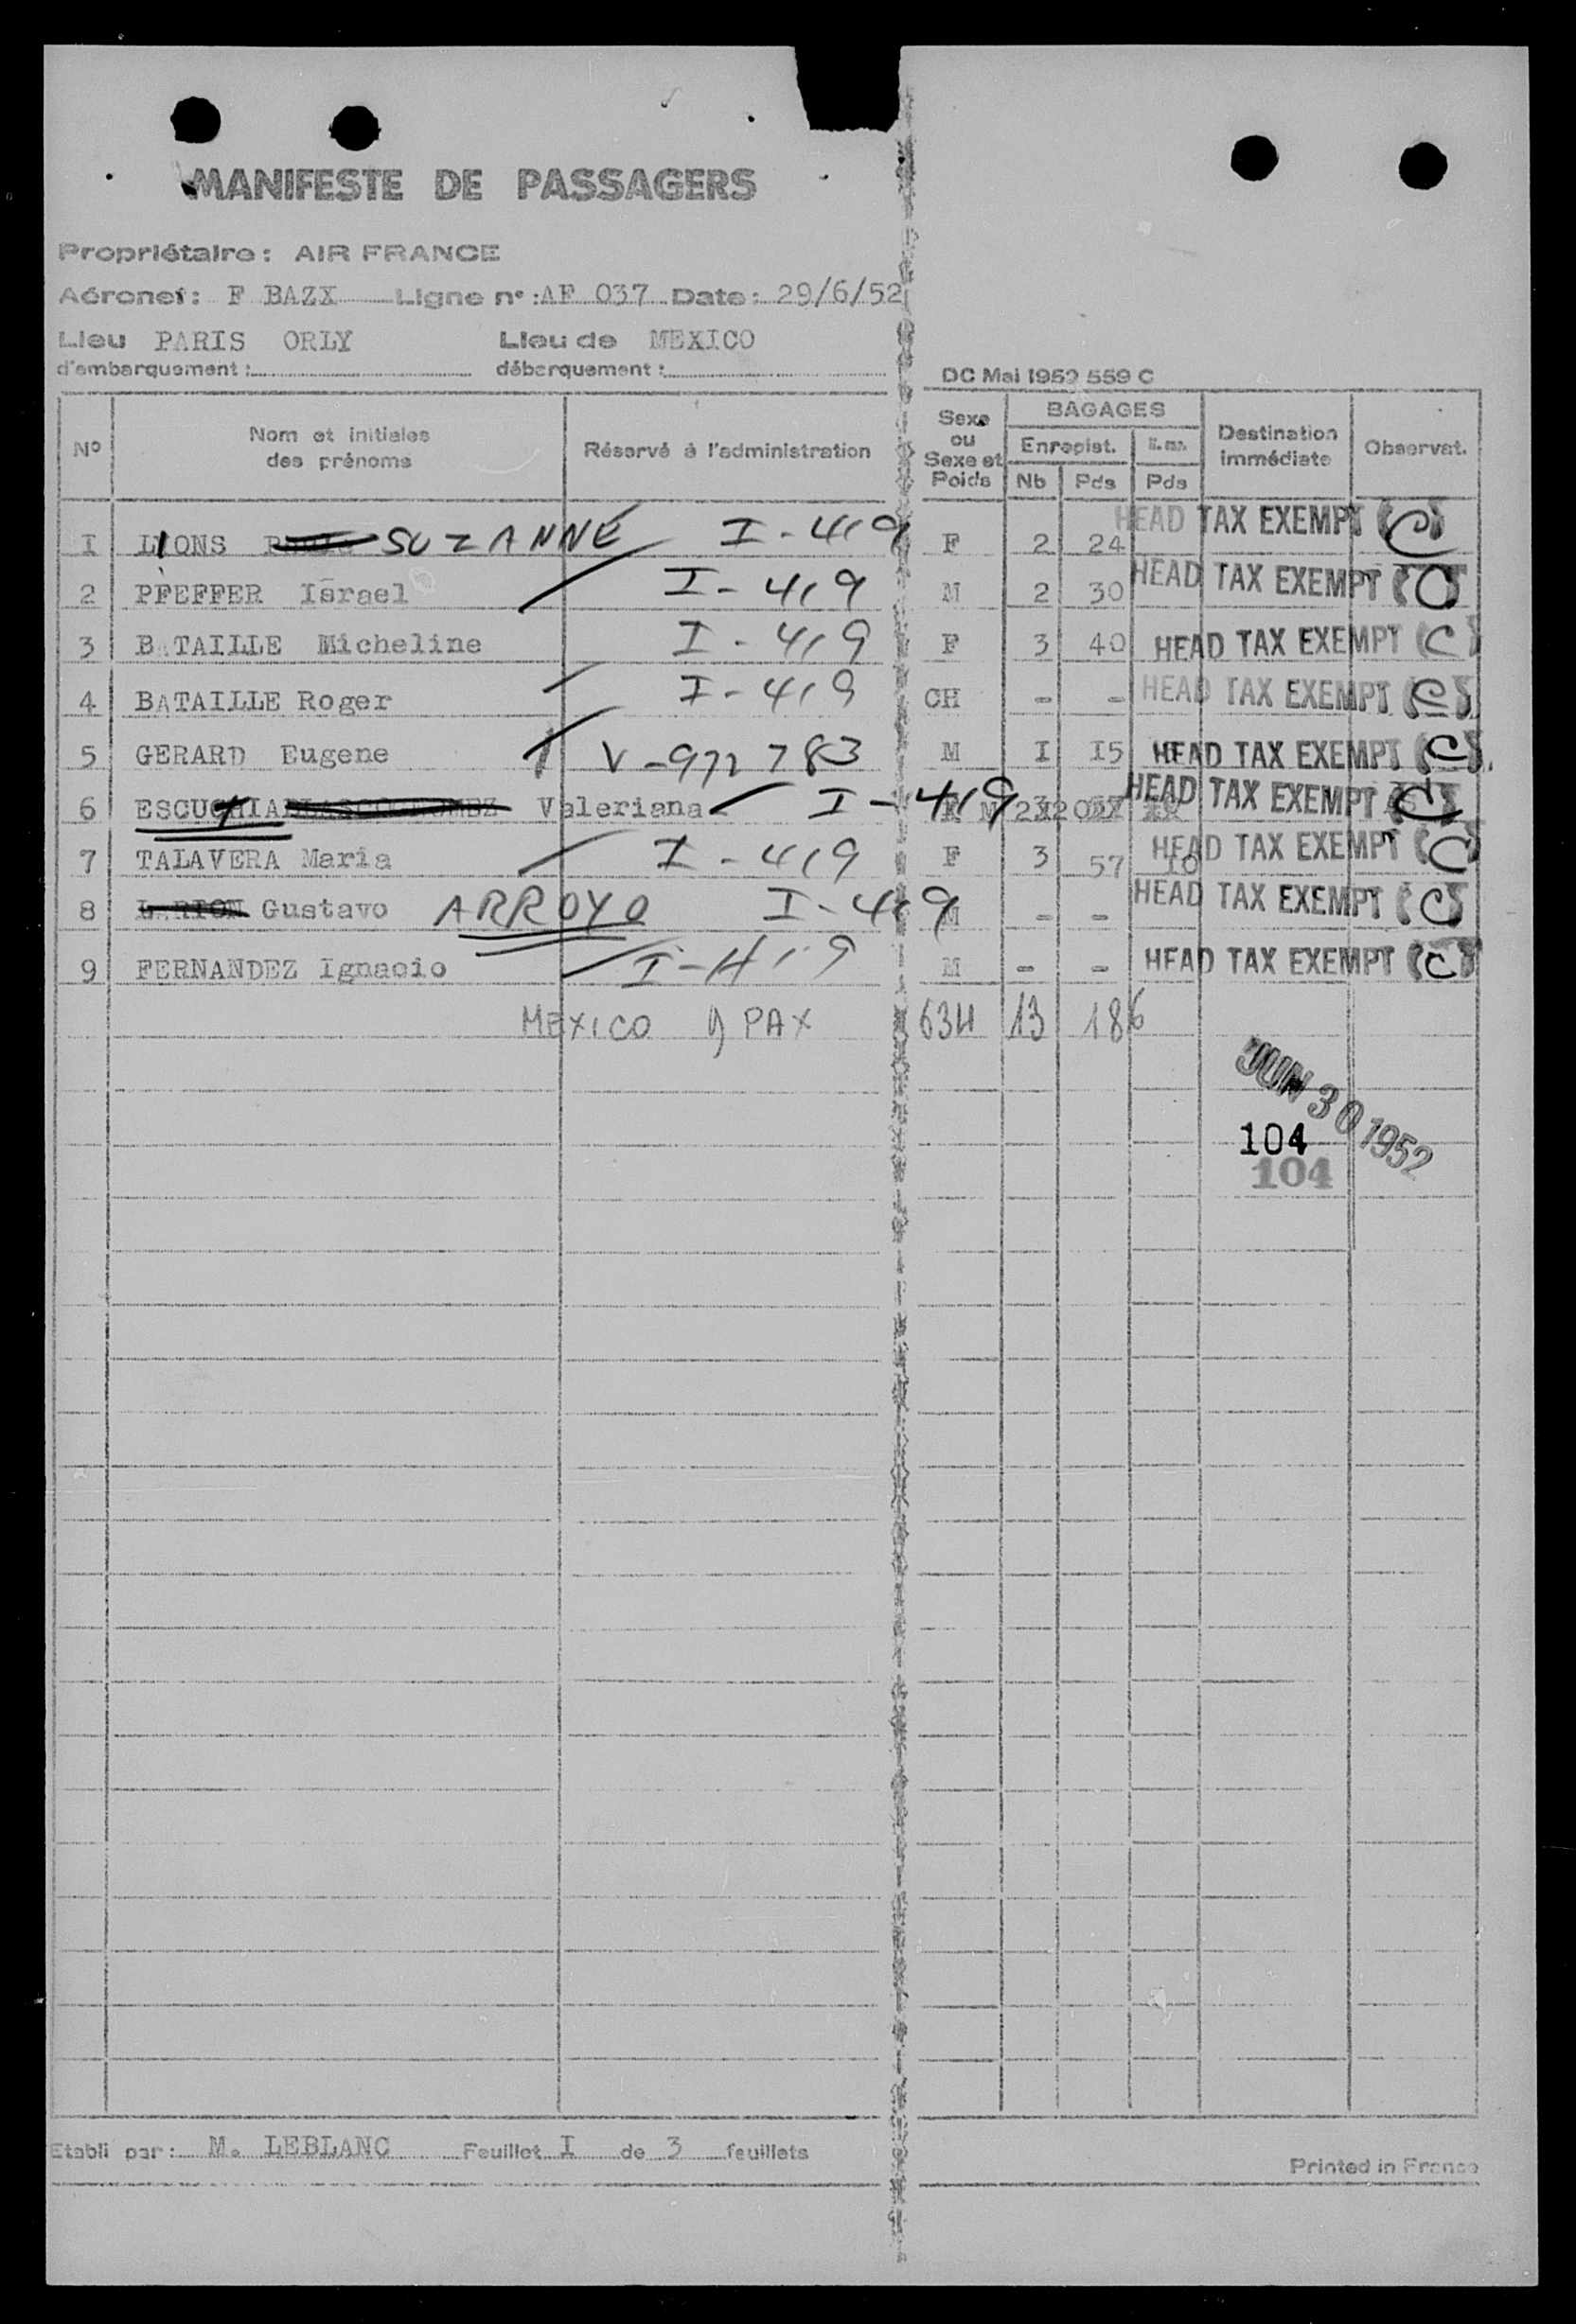 MANIFESTE DE PASSAGERS
Propriétaire : AIR FRANCE
Aéronef : F BAZX Ligne n° : AF 037 Date : 29/6/52
Lieu d'embarquement : PARIS ORLY Lieu de débarquement : MEXICO
DC Mai 1952 559 C
N° Nom et initiales des prénoms Réservé à l'administration Sexe ou Sexe et Poids BAGAGES Enregist. Nb Pds Pds Destination immédiate Observat.
I LIONS SUZANNE I-419 F 2 24 HEAD TAX EXEMPT (C)
2 PFEFFER Israel I-419 M 2 30 HEAD TAX EXEMPT (C)
3 BATAILLE Micheline I-419 F 3 40 HEAD TAX EXEMPT (C)
4 BATAILLE Roger I-419 CH - - HEAD TAX EXEMPT (C)
5 GERARD Eugene V-972783 M I I5 HEAD TAX EXEMPT (C)
6 Valeriana I-419 HEAD TAX EXEMPT (C)
7 TALAVERA Maria I-419 F 3 57 10 HEAD TAX EXEMPT (C)
8 Gustavo ARROYO I-419 M - - HEAD TAX EXEMPT (C)
9 FERNANDEZ Ignacio I-419 M - - HEAD TAX EXEMPT (C)
MEXICO 9 PAX 634 13 186
JUN 30 1952
104
104
Etabli par : M. LEBLANC Feuillet I de 3 feuillets
Printed in France